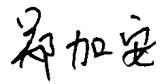 郑加安